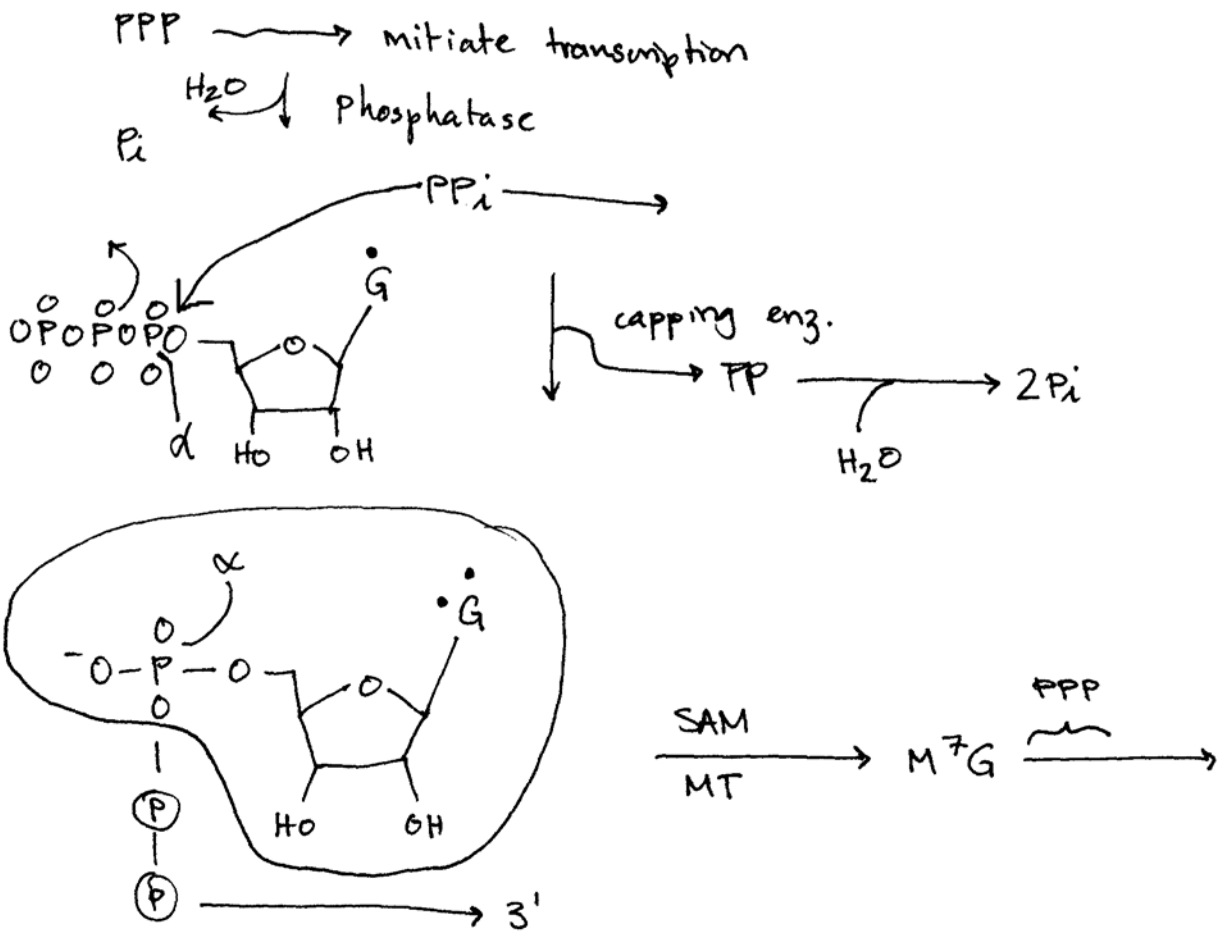 PPP → mitiate transcription
H₂O
phosphatase
Pi
PPi →
G
O O O
OPOPOPO
O
O O O
α
HO OH
capping enz.
PP → 2Pi
H₂O
α
G
O
⁻O-P-O
O
O
HO OH
P
P → 3'
SAM
MT
M⁷G
PPP